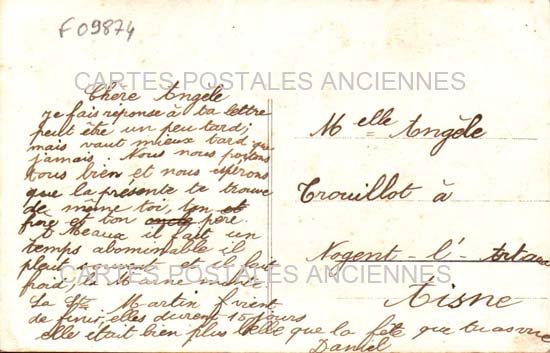 F09874
CARTES POSTALES ANCIENNES
Chère Angèle
je fais réponse à ta lettre
peut être un peu tard;
mais vaut mieux tard que
jamais. Nous nous portons
tous bien et nous espérons
que la présente te trouve
de même toi, ton et
frère et ton père.
à Meaux il fait un
temps abominable il
pleut et il fait
froid, la Marne monte
La Ste Martin vient
de finir, elles durent 15 jours
elle était bien plus belle que la fête que tu as vue
Daniel
Melle Angèle
Trouillot à
Nogent-l'-Artaud
Aisne
CARTES POSTALES ANCIENNES
CARTES POSTALES ANCIENNES